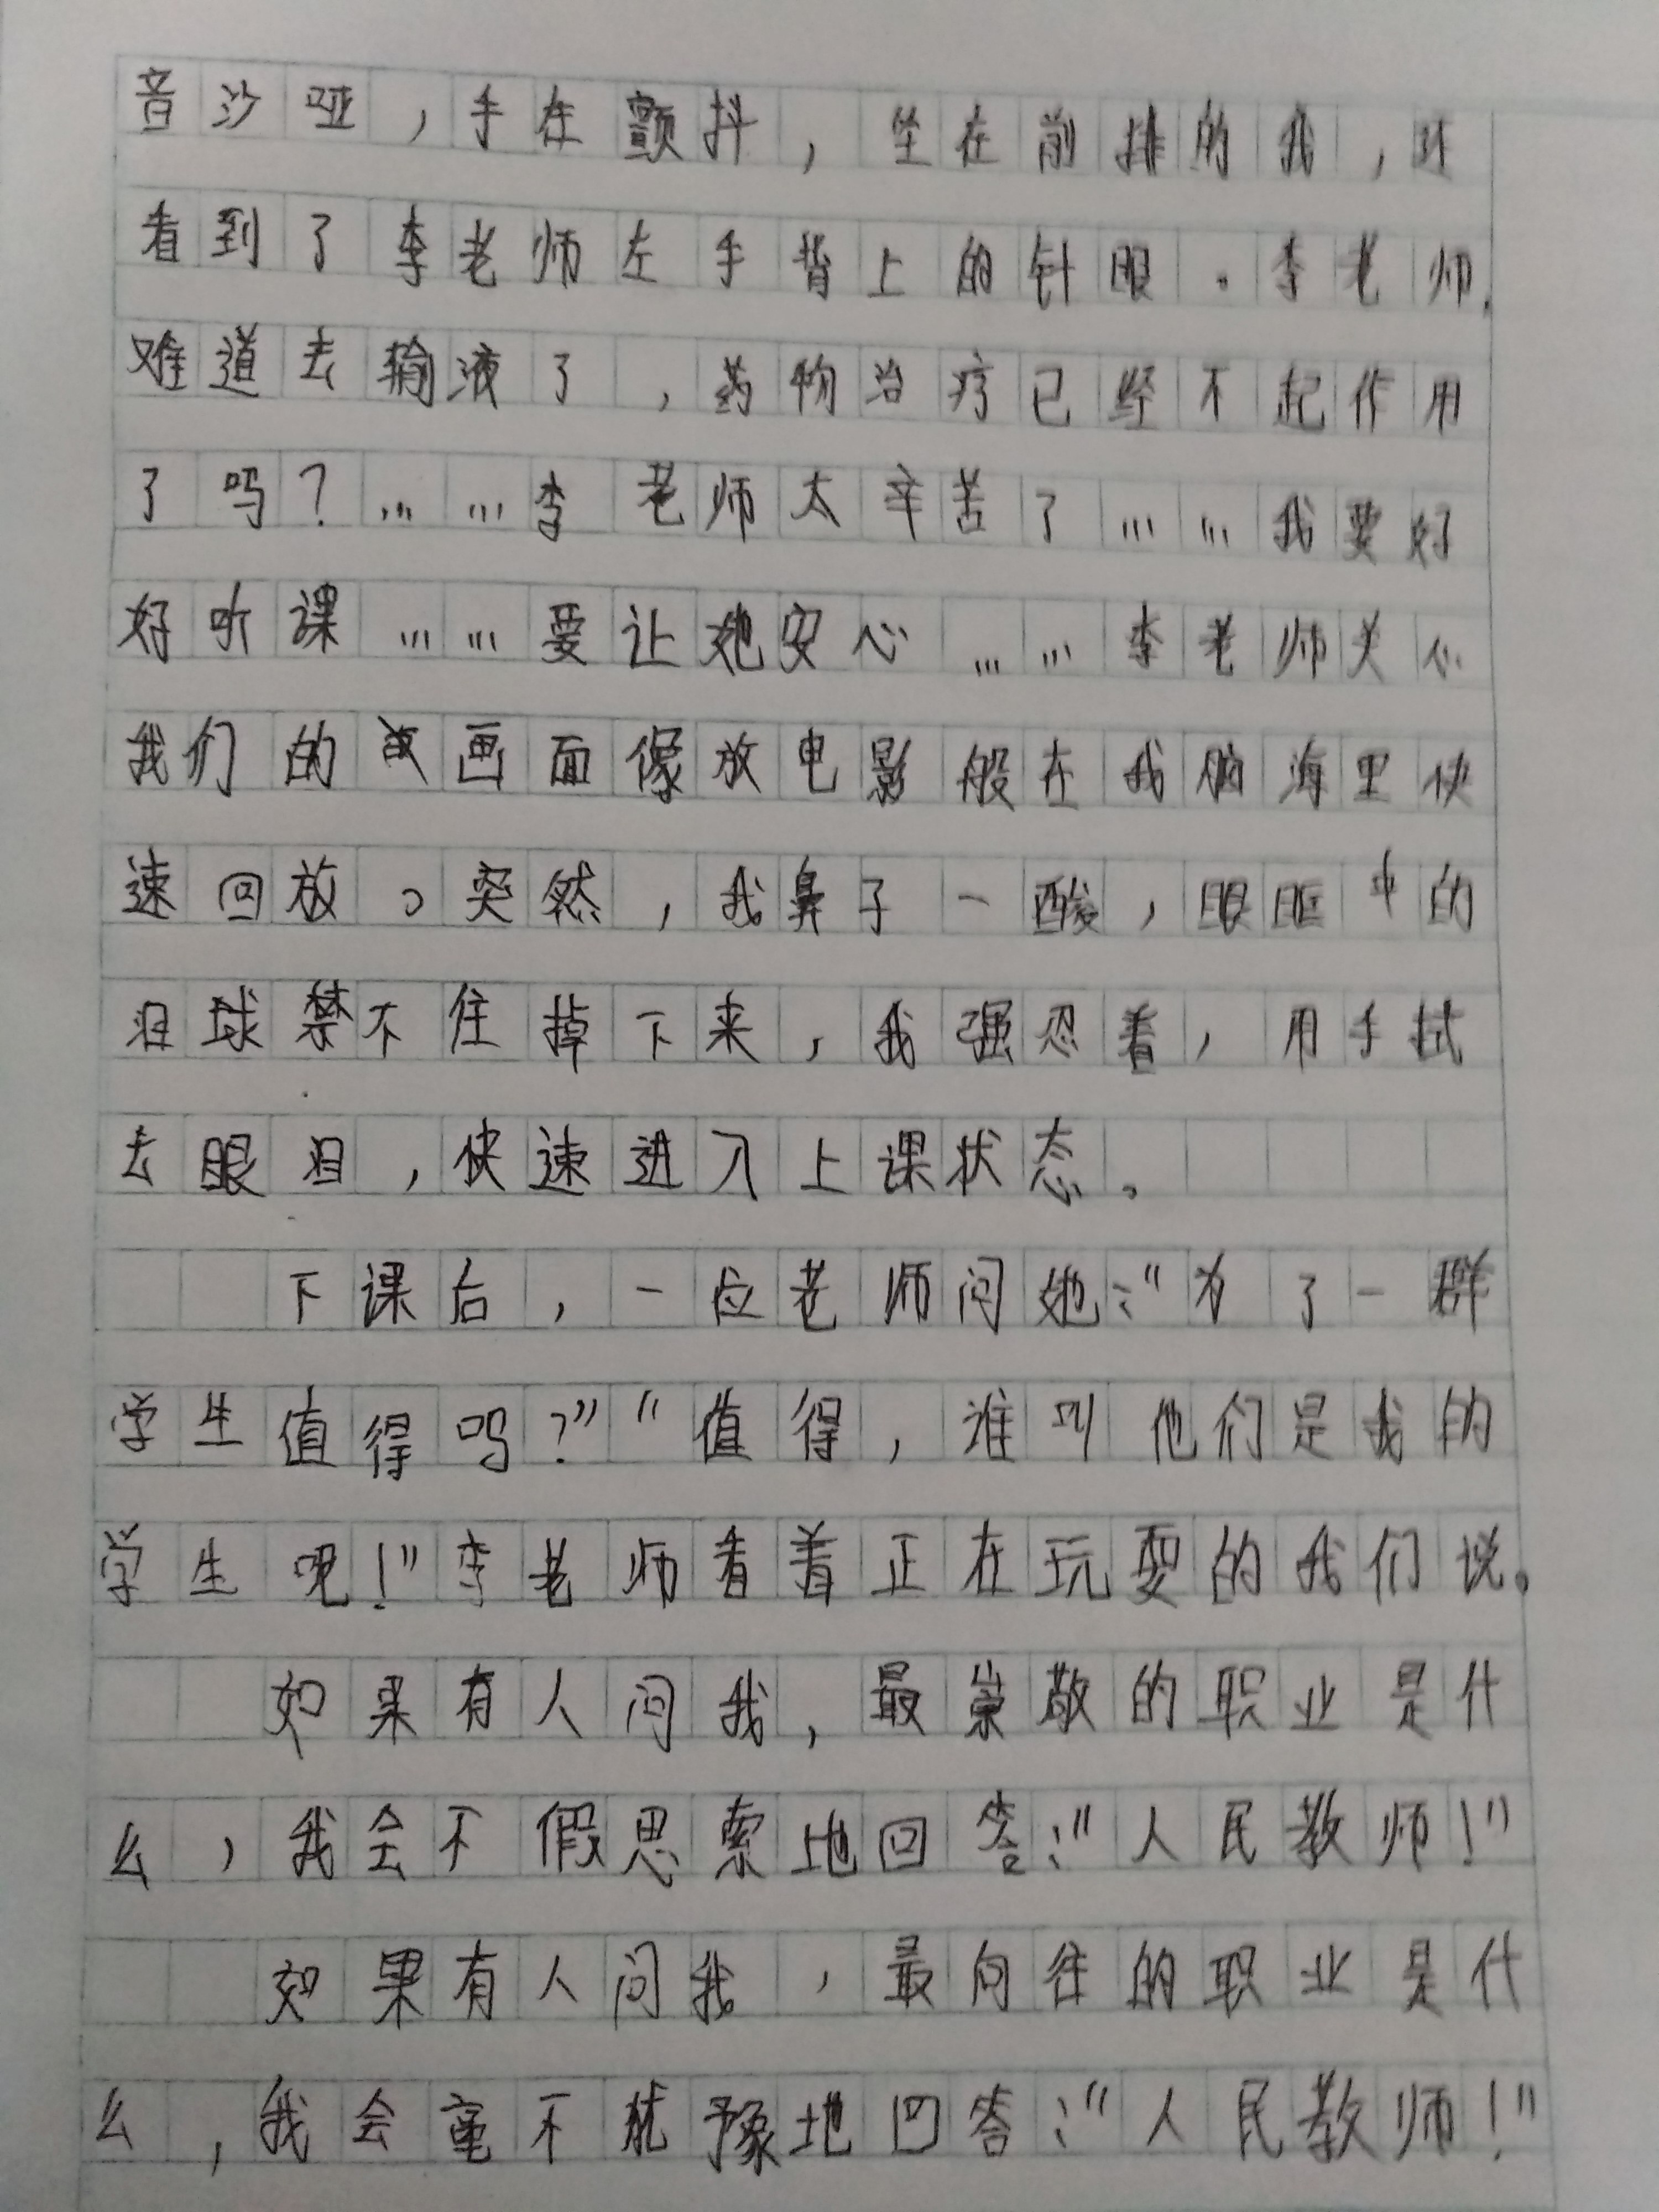 音沙哑，手在颤抖，坐在前排的我，还
看到了李老师左手背上的针眼。李老师，
难道去输液了，药物治疗已经不起作用
了吗？……李老师太辛苦了……我要好
好听课……要让她安心……李老师关心
我们的画面像放电影般在我脑海里快
速回放。突然，我鼻子一酸，眼眶中的
泪球禁不住掉下来，我强忍着，用手拭
去眼泪，快速进入上课状态。
下课后，一位老师问她：“为了一群
学生值得吗？”“值得，谁叫他们是我的
学生呢！”李老师看着正在玩耍的我们说。
如果有人问我，最崇敬的职业是什
么，我会不假思索地回答：“人民教师！”
如果有人问我，最向往的职业是什
么，我会毫不犹豫地回答：“人民教师！”